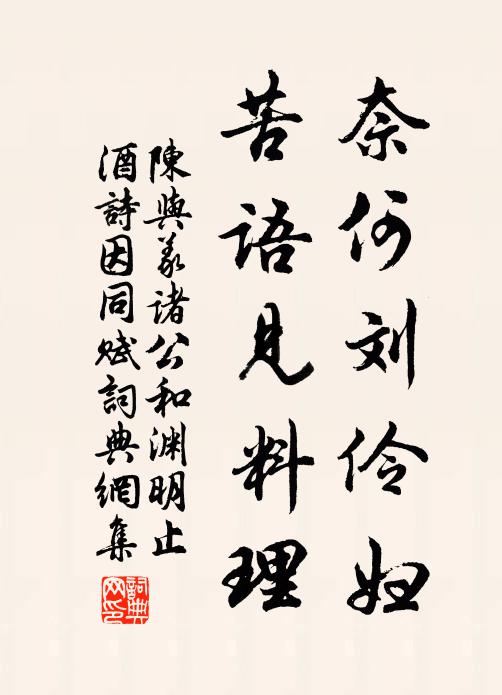 奈何刘伶妇
苦语见料理
陳與義诸公和渊明止
酒詩因同赋詞典網集
詞典網印